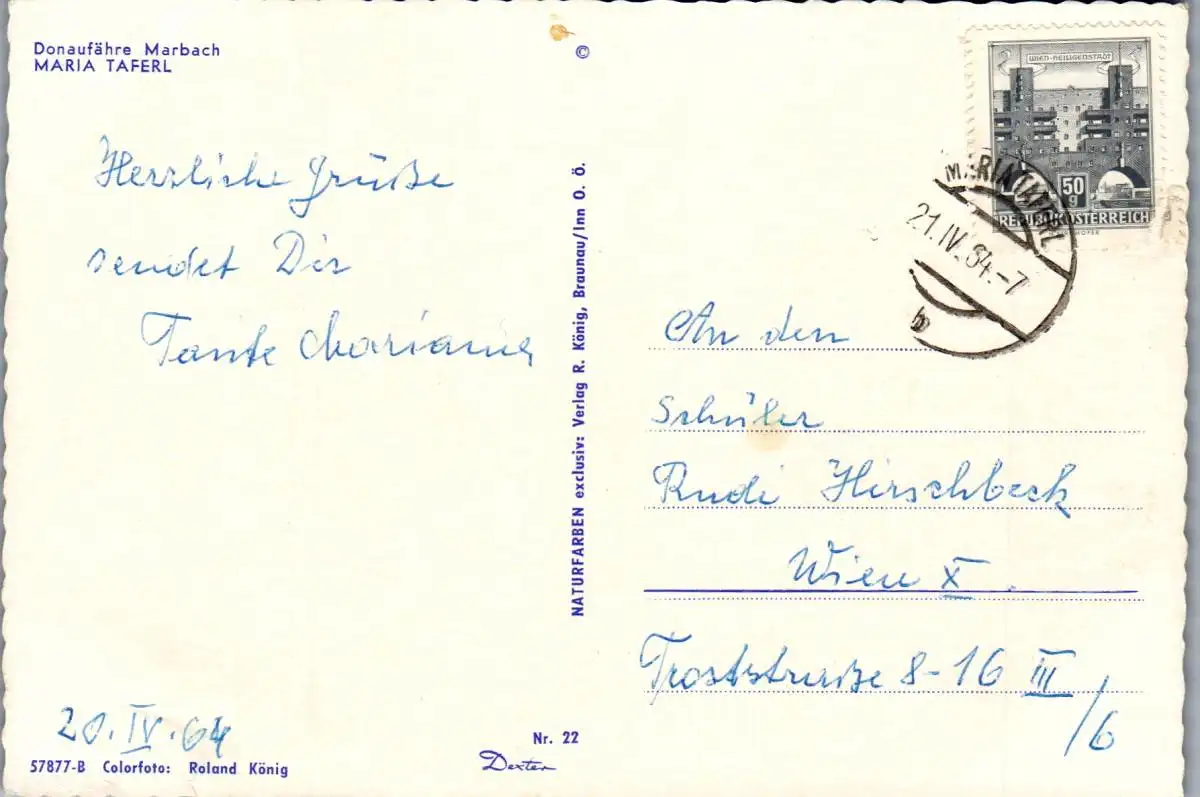 Donaufähre Marbach
MARIA TAFERL
Herzliche Grüße
sendet Dir
Tante Marianne
20.IV.64
57877-B Colorfoto: Roland König
©
NATURFARBEN exclusiv: Verlag R. König, Braunau/Inn O. Ö.
Nr. 22
Dexter
WIEN-HEILIGENSTADT
50
g
REPUBLIK ÖSTERREICH
MARIA TAFERL
21.IV.64.-7
b
An den
Schüler
Rudi Hirschbeck
Wien X.
Troststraße 8-16 III
/6